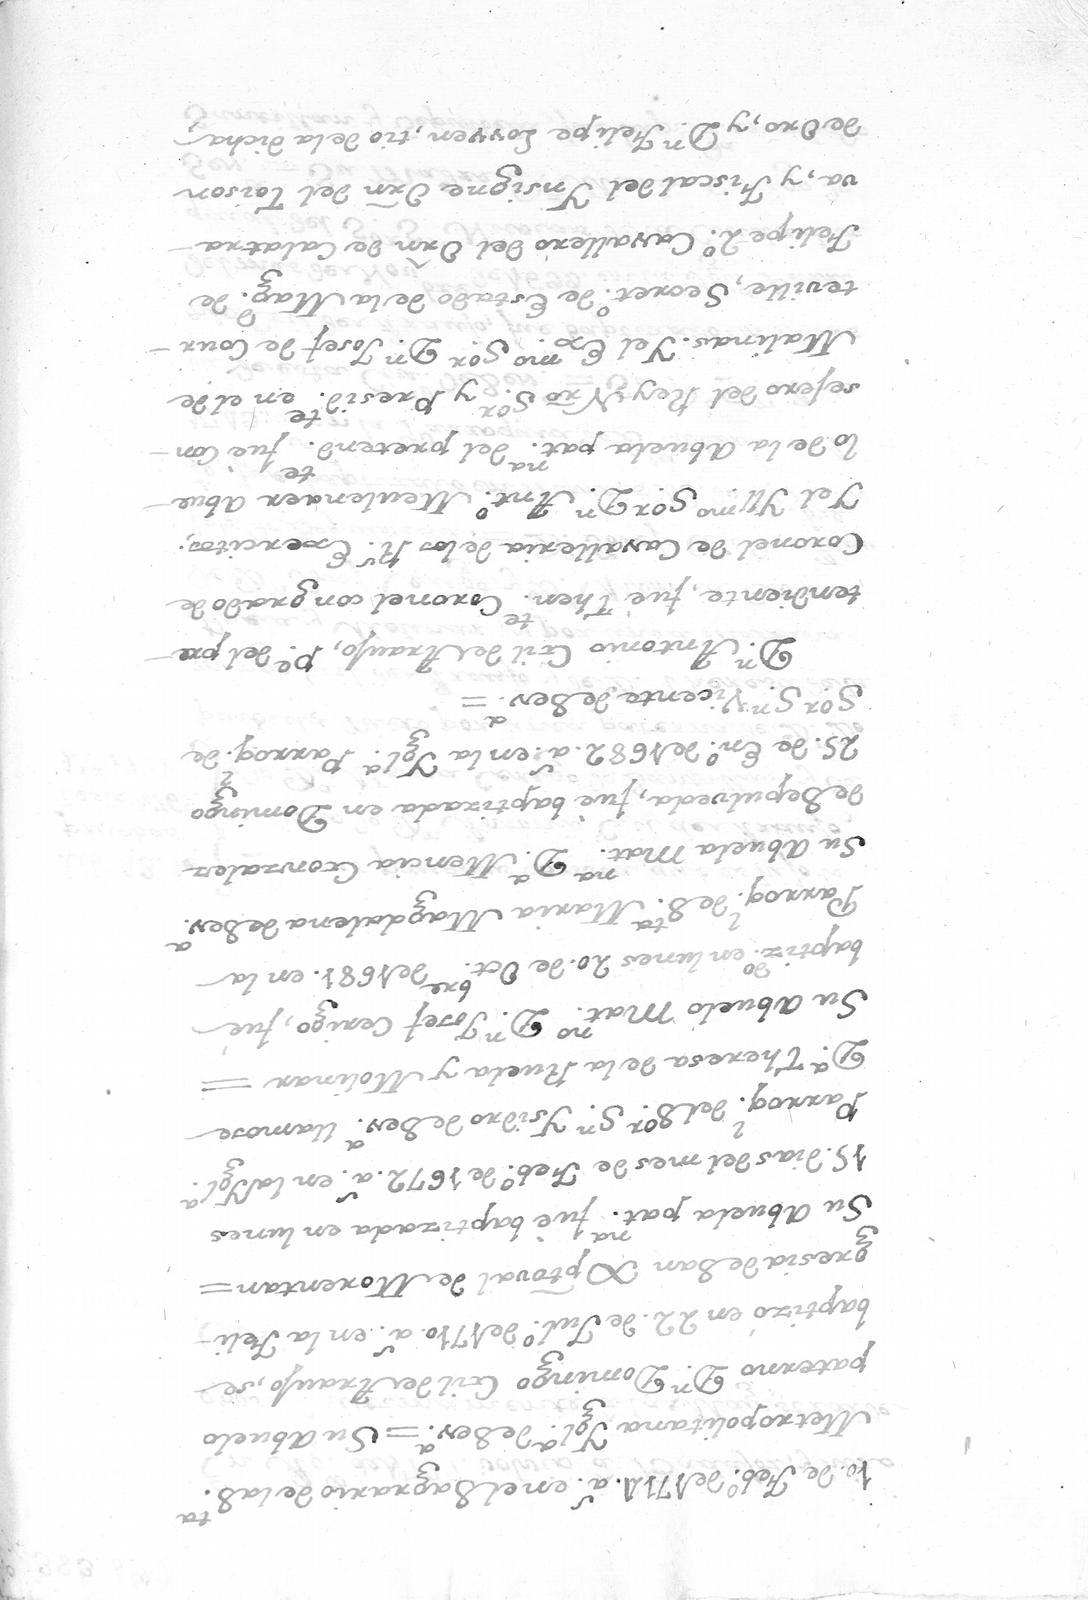 10. de Feb.º de 1711. a.s en el Sagrario de la S.ta
Metropolitana Ygl.a de Sev.a = Su Abuelo
paterno D.n Domingo Gil de Araujo, se
baptizó en 22. de Jul.º de 1710. a.s en la Feli-
gresia de San Xptoval de Morentan =
Su Abuela pat.na fuè baptizada en lunes
15. dias del mes de Feb.º de 1672. a.s en la Ygl.a
Parroq.l del S.or S.n Ysidro de Sev.a llamose
D.a Theresa de la Rueda y Molinar =
Su Abuelo Mat.no D.n Josef Cerigo, fuè
baptiz.do en lunes 20. de Oct.bre de 1681. en la
Parroq.l de S.ta Maria Magdalena de Sev.a
Su Abuela Mat.na D.a Mencia Gonzalez
de Sepulveda, fuè baptizada en Domingo
25. de En.º de 1682. a.s en la Ygl.a Parroq.l de
S.or S.n Vicente de Sev.a =
D.n Antonio Gil de Araujo, P.e del pre-
tendiente, fuè Then.te Coronel con grado de
Coronel de Cavalleria de los R.s Exercitos;
Y el Yll.mo S.or D.n Ant.º Meulenaer Abue-
lo de la Abuela pat.na del pretend.te fuè Con-
sejero del Rey Nrō S.or y Presid.te en el de
Malinas. Y el Ex.mo S.or D.n Josef de Cour-
teville, Secret.º de Estado de la Mag.d de
Felipe 2.º Cavallero del Orn̄ de Calatra-
va, y Fiscal del Ynsigne Orn̄ del Toison
de Oro, y D.n Felipe Lovven, tio de la dicha